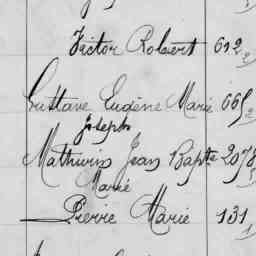 Victor Robert 612
Gustave Eugène Marie 665
Joseph
Mathurin Jean Bapte 2078
Marie
Pierre Marie 131